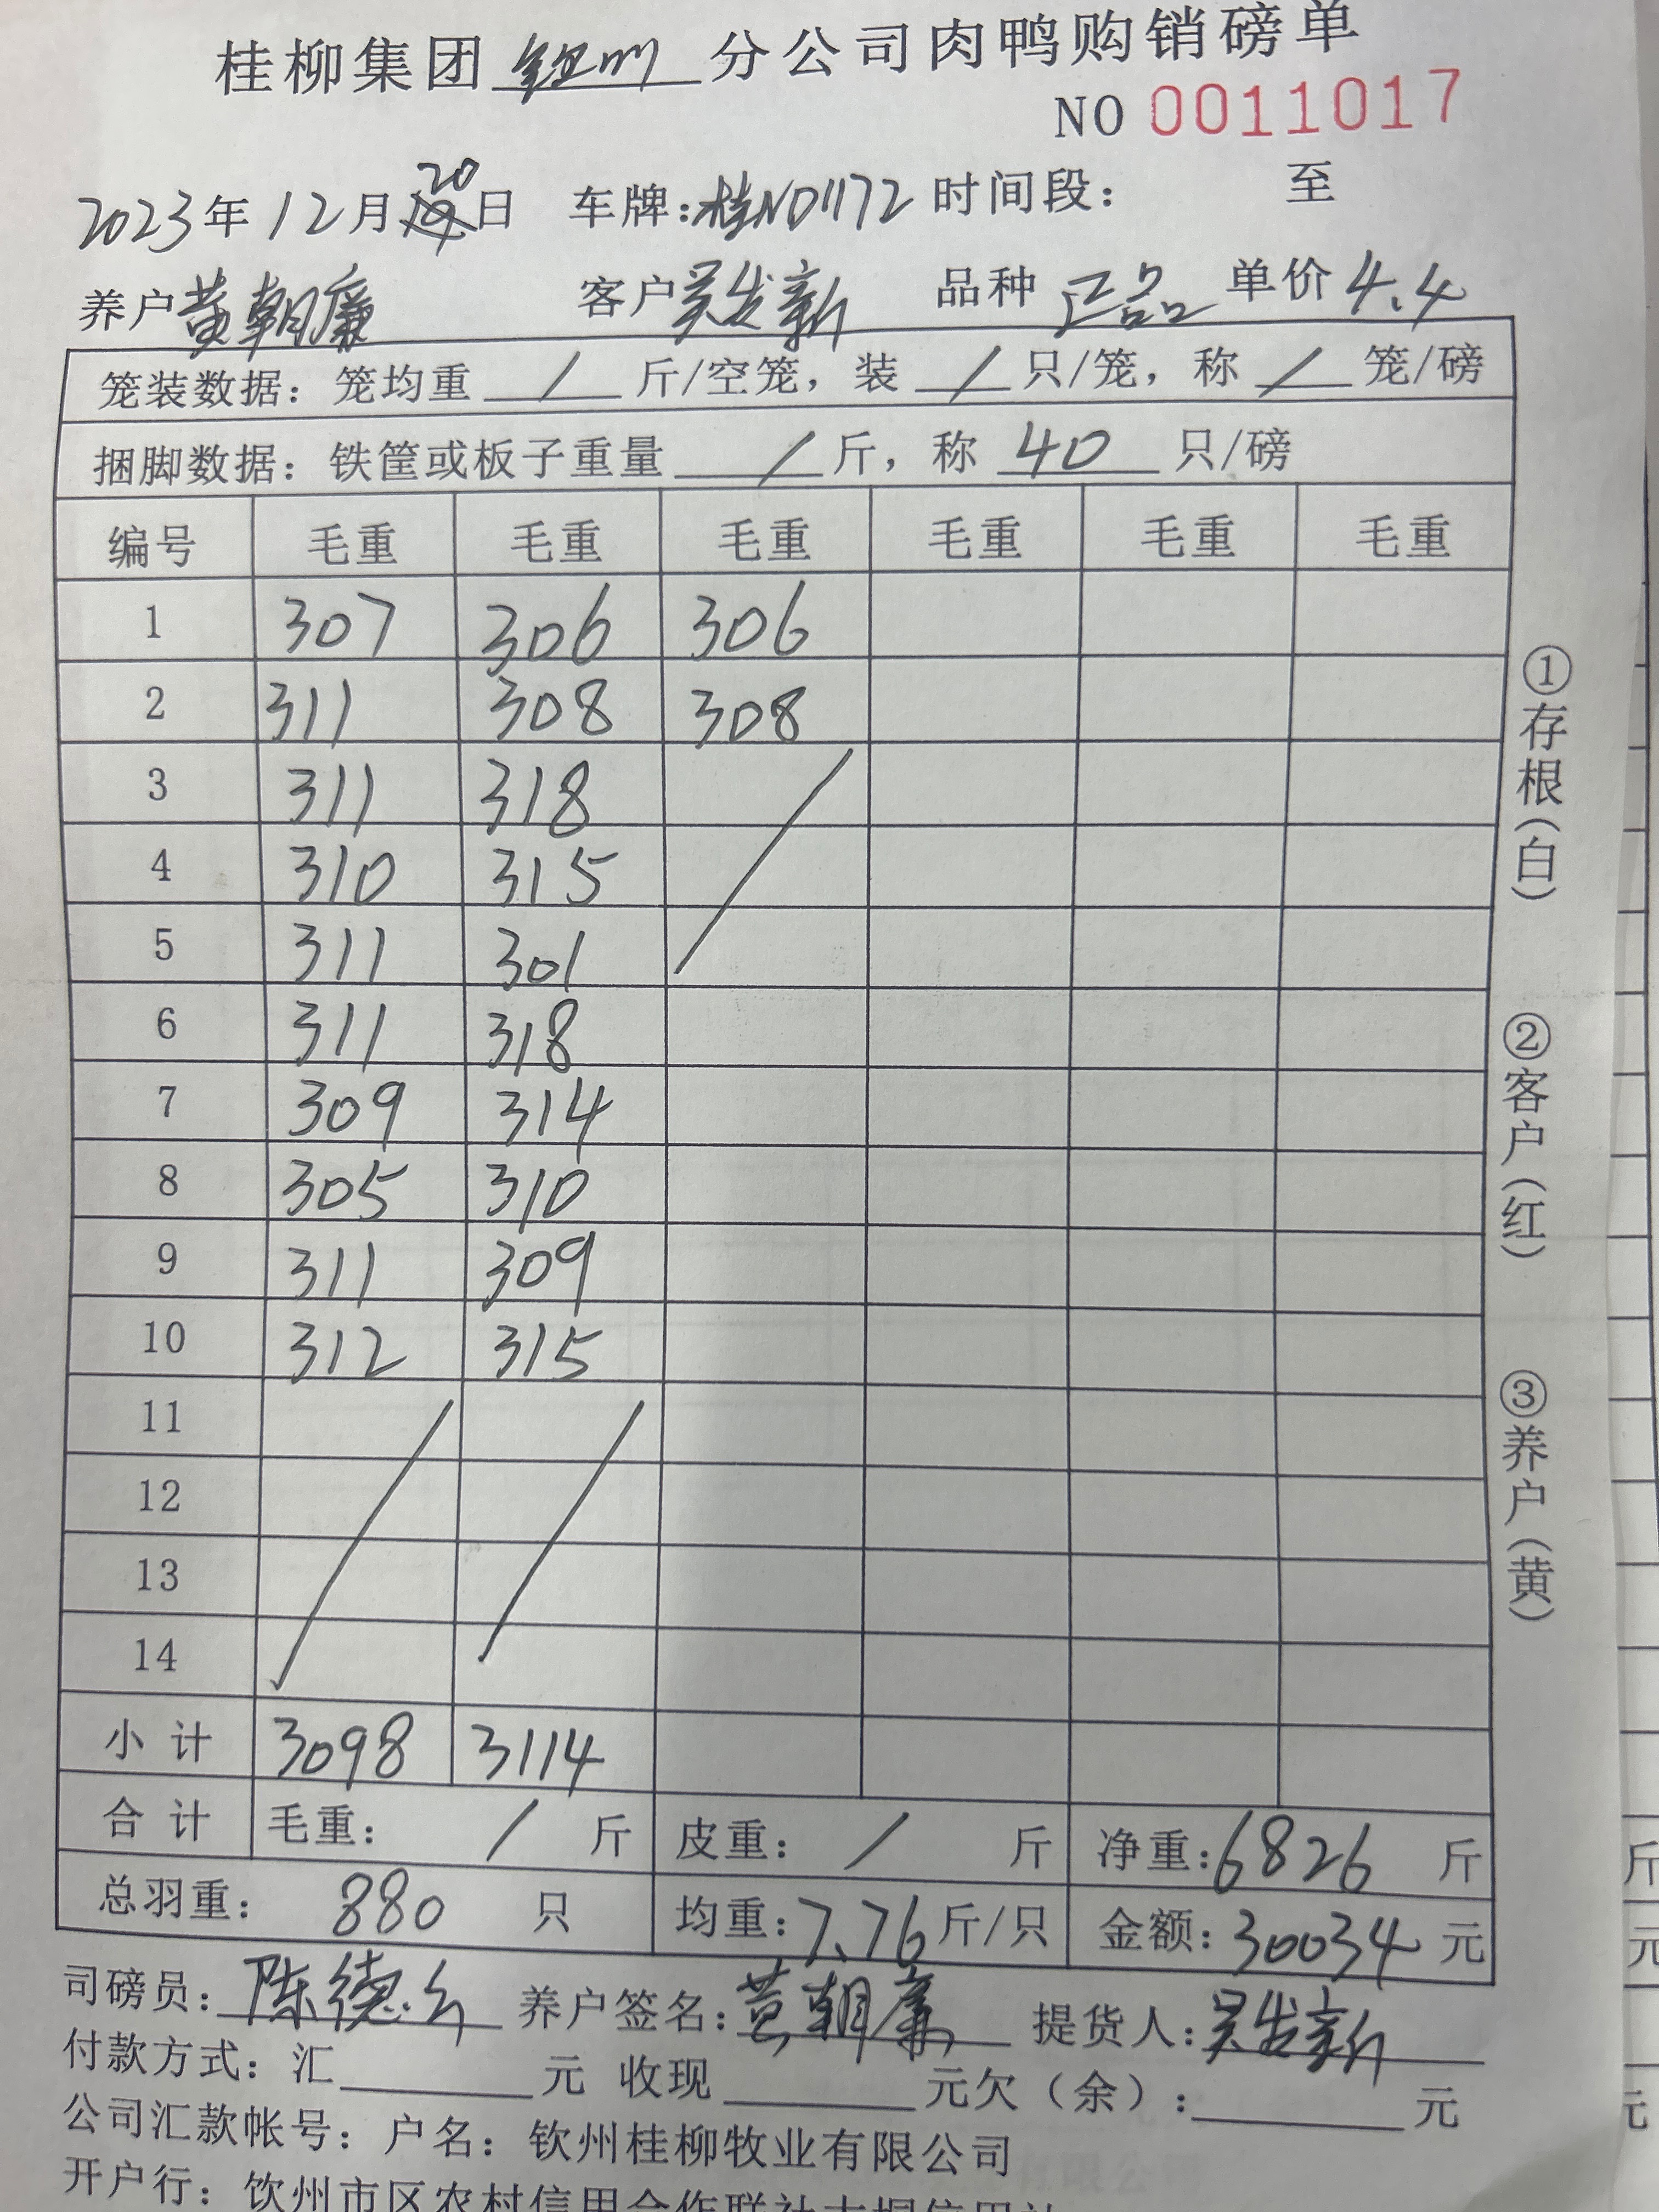 桂柳集团钦州分公司肉鸭购销磅单
NO 0011017
2023年12月20日 车牌:桂ND1172 时间段: 至
养户黄朝廉 客户吴发新 品种 正品 单价4.4
笼装数据: 笼均重 / 斤/空笼, 装 / 只/笼, 称 / 笼/磅
捆脚数据: 铁筐或板子重量 / 斤, 称 40 只/磅
编号 毛重 毛重 毛重 毛重 毛重 毛重
1 307 306 306
2 311 308 308
3 311 318 /
4 310 315
5 311 301
6 311 318
7 309 314
8 305 310
9 311 309
10 312 315
11 / /
12
13
14
小计 3098 3114
合计 毛重: / 斤 皮重: / 斤 净重:6826 斤
总羽重: 880 只 均重:7.76斤/只 金额:30034元
司磅员: 陈德 养户签名:黄朝廉 提货人:吴发新
付款方式: 汇 元 收现 元欠(余): 元
公司汇款帐号: 户名: 钦州桂柳牧业有限公司
开户行: 钦州市区农村信用合作联社大垌信用社
①存根(白)
②客户(红)
③养户(黄)
斤
元
元